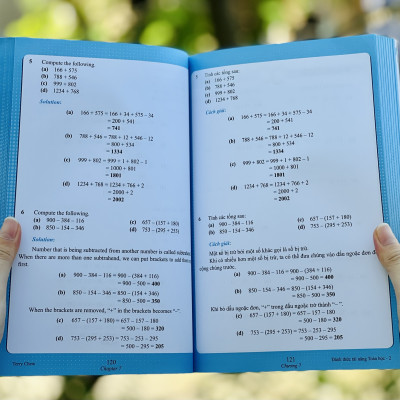 5 Compute the following.
(a) 166 + 575
(b) 788 + 546
(c) 999 + 802
(d) 1234 + 768
Solution:
(a) 166 + 575 = 166 + 34 + 575 – 34
= 200 + 541
= 741
(b) 788 + 546 = 788 + 12 + 546 – 12
= 800 + 534
= 1334
(c) 999 + 802 = 999 + 1 + 802 – 1
= 1000 + 801
= 1801
(d) 1234 + 768 = 1234 + 766 + 2
= 2000 + 2
= 2002
6 Compute the following.
(a) 900 – 384 – 116 (c) 657 – (157 + 180)
(b) 850 – 154 – 346 (d) 753 – (295 + 253)
Solution:
Number that is being subtracted from another number is called
When there are more than one subtrahend, we can put brackets to add
first.
(a) 900 – 384 – 116 = 900 – (384 + 116)
= 900 – 500 = 400
(b) 850 – 154 – 346 = 850 – (154 + 346)
= 850 – 500 = 350
When the brackets are removed, "+" in the brackets becomes "–".
(c) 657 – (157 + 180) = 657 – 157 – 180
= 500 – 180 = 320
(d) 753 – (295 + 253) = 753 – 253 – 295
= 500 – 295 = 205
Terry Chew
120
Chapter 7
Tính các tổng sau:
(a) 166 + 575
(b) 788 + 546
(c) 999 + 802
(d) 1234 + 768
Cách giải:
(a) 166 + 575 = 166 + 34 + 575 – 34
= 200 + 541
= 741
(b) 788 + 546 = 788 + 12 + 546 – 12
= 800 + 534
= 1334
(c) 999 + 802 = 999 + 1 + 802 – 1
= 1000 + 801
= 1801
(d) 1234 + 768 = 1234 + 766 + 2
= 2000 + 2
= 2002
Tính các tổng sau:
(a) 900 – 384 – 116 (c) 657 – (157 + 180)
(b) 850 – 154 – 346 (d) 753 – (295 + 253)
Cách giải:
Một số bị trừ bởi một số khác gọi là số bị trừ.
Khi có nhiều hơn một số bị trừ, ta có thể đưa chúng vào dấu ngoặc đơn để
cộng chúng trước.
(a) 900 – 384 – 116 = 900 – (384 + 116)
= 900 – 500 = 400
(b) 850 – 154 – 346 = 850 – (154 + 346)
= 850 – 500 = 350
Khi bỏ dấu ngoặc đơn, "+" trong dấu ngoặc trở thành "–".
(c) 657 – (157 + 180) = 657 – 157 – 180
= 500 – 180 = 320
(d) 753 – (295 + 253) = 753 – 253 – 295
= 500 – 295 = 205
121
Chương 7
Đánh thức tài năng Toán học - 2